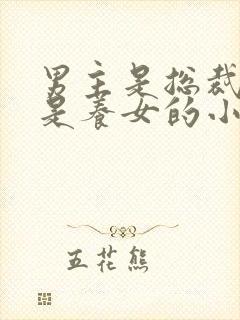 男主是总裁
是养女的小
五花熊